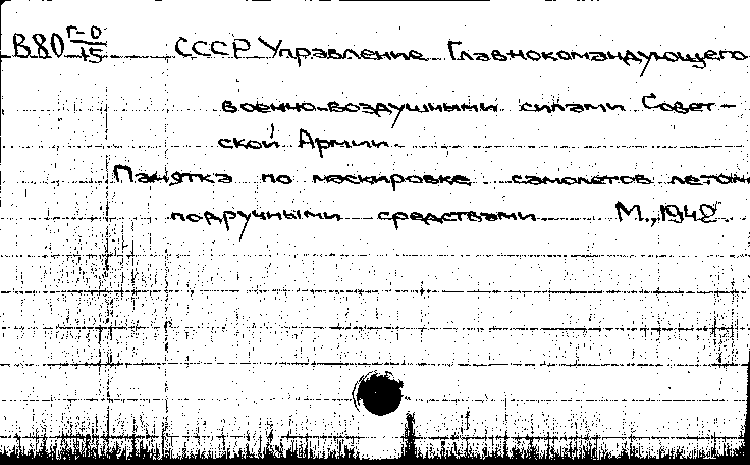 В80 Г-0/15 СССР Управление Главнокомандующего
военно-воздушными силами Совет-
ской Армии.
Памятка по маскировке самолетов летом
подручными средствами. М., 1942